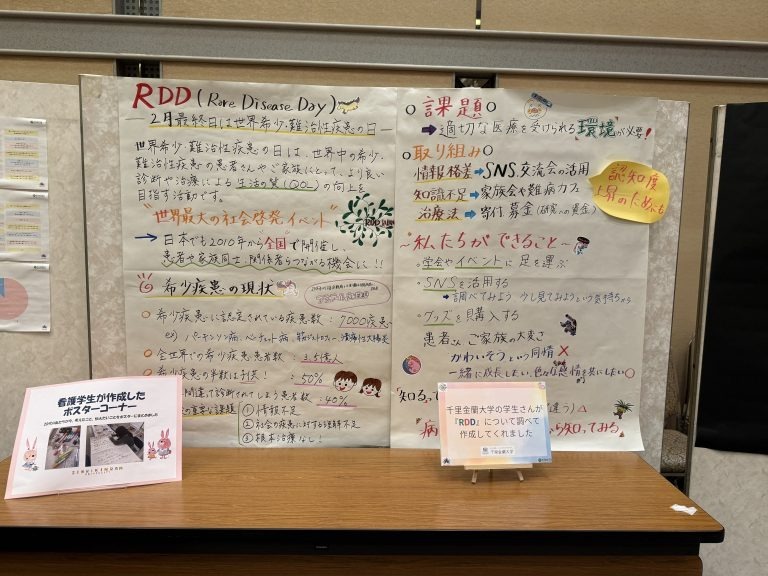 RDD (Rare Disease Day)
2月最終日は世界希少・難治性疾患の日
世界希少・難治性疾患の日は、世界中の希少・
難治性疾患の患者さんやご家族にとって、より良い
診断や治療による生活の質(QOL)の向上を
目指す活動です。
"世界最大の社会啓発イベント"
→ 日本でも2010年から全国で開催し、
患者や家族同士、関係者らつながる機会に!!
RDD JAPAN
希少疾患の現状
希少疾患に認定されている疾患数:7000疾患
ex) パーキンソン病、ベーチェット病、筋ジストロフィー、潰瘍性大腸炎
全世界での希少疾患患者数:3.5億人
希少疾患の半数は子供!:50%
間違って診断されてしまう患者数:40%
①情報不足
②社会の疾患に対する理解不足
③根本治療なし!
課題
→適切な医療を受けられる環境が必要!
取り組み
情報格差→SNS、交流会の活用
知識不足→家族会や難病カフェ
治療法→寄付 募金(研究への資金)
認知度
上昇のためにも
~私たちができること~
・学会やイベントに足を運ぶ
・SNSを活用する
→調べてみよう 少し見てみようという気持ちから
・グッズを購入する
患者さん ご家族の大変さ
かわいそうという同情 ×
一緒に成長したい、色々な感情を共にしたい○
「知る」
違う)△
から知ってみる
看護学生が作成した
ポスターコーナー
SENRI KINRAN
UNIVERSITY
千里金蘭大学の学生さんが
『RDD』について調べて
作成してくれました
千里金蘭大学